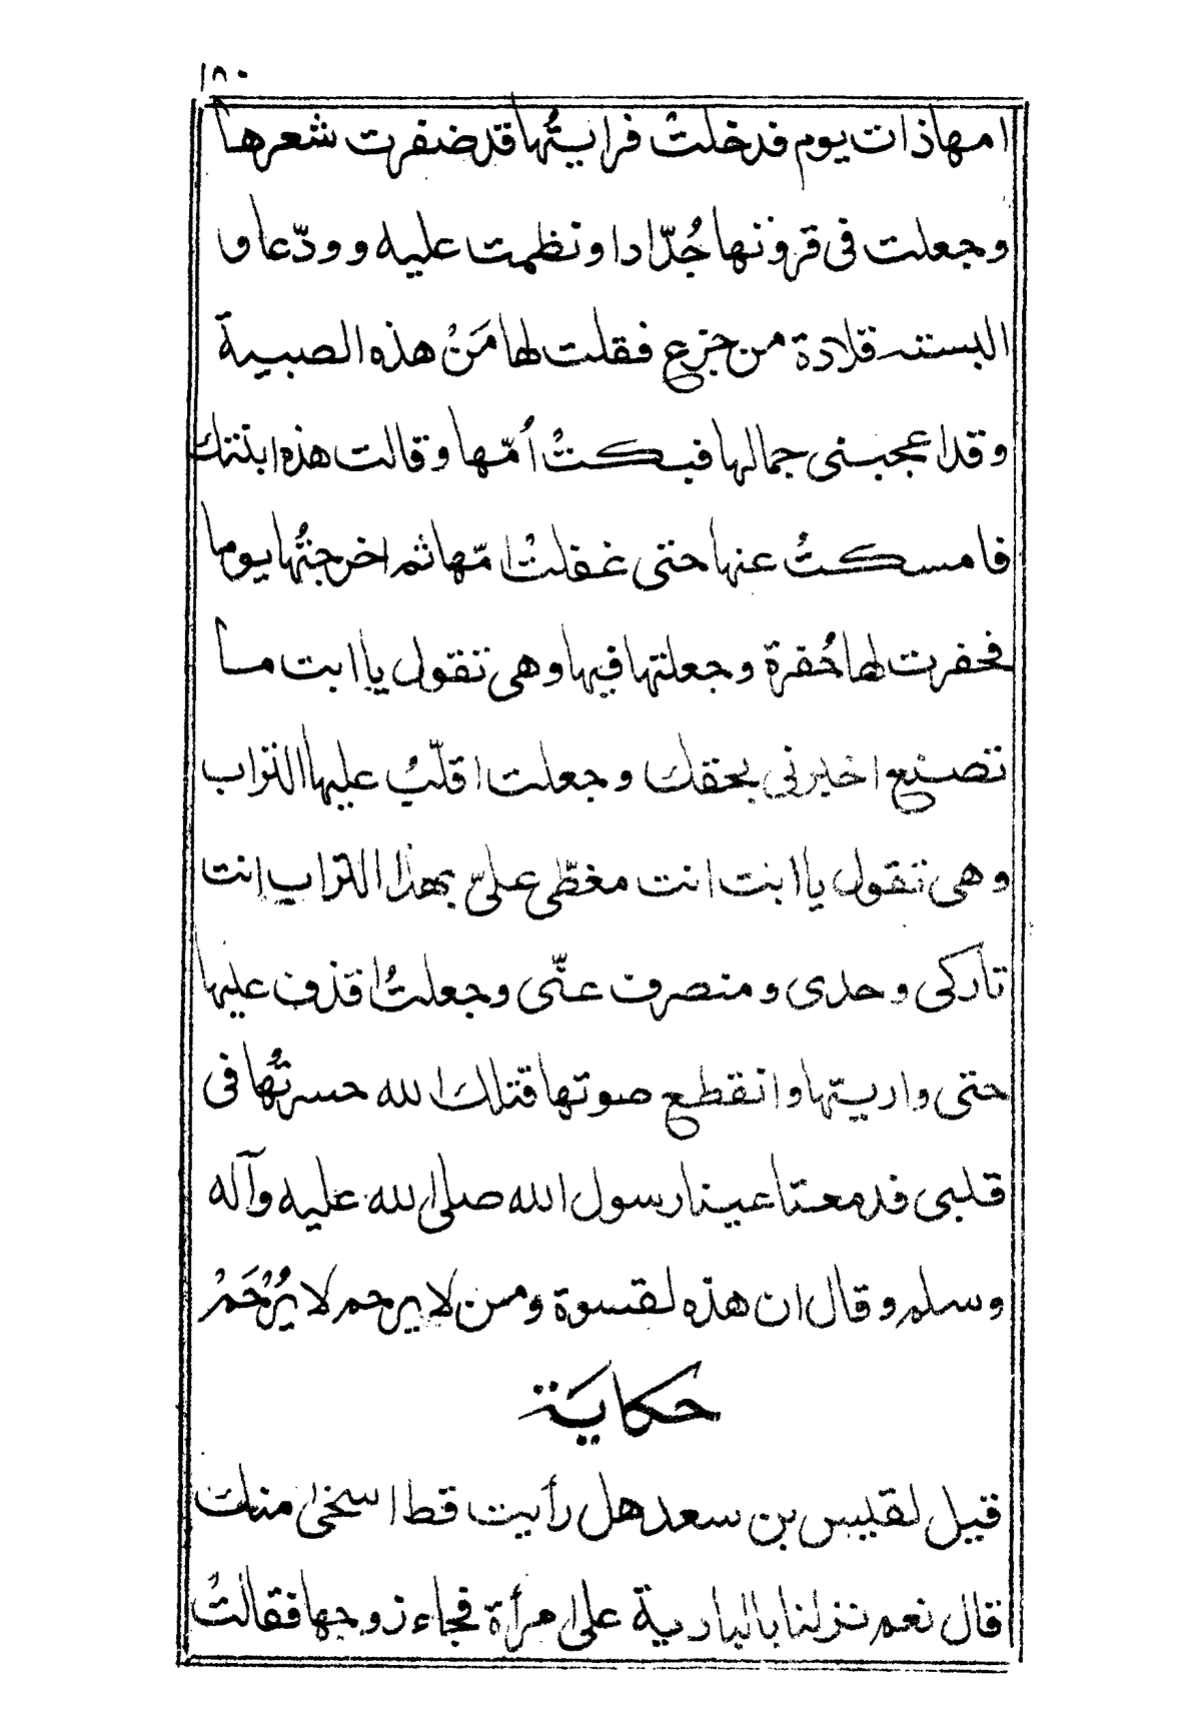 ١٨٠
امها ذات يوم فدخلتُ فرايتُها قد ضفرت شعرها
وجعلت فى قرونها جُدّادا ونظمت عليه وودّعا و
البستنه قلادة من جزع فقلت لها مَنْ هذه الصبية
وقد اعجبنى جمالها فبكتْ اُمّها وقالت هذه ابنتك
فامسكتُ عنها حتى غفلتْ امّها ثم اخرجتُها يوما
فحفرت لها حُفرة وجعلتها فيها وهى تقول يا ابت ما
تصنع اخبرنى بحقك وجعلت اقلّبُ عليها التراب
وهى تقول يا ابت انت مغطّى علىّ بهذا التراب انت
تاركى وحدى ومنصرف عنّى وجعلتُ اقذف عليها
حتى واريتها وانقطع صوتها فتلك الله حسرتُها فى
قلبى فدمعتا عينا رسول الله صلى الله عليه وآله
وسلم وقال ان هذه لقسوة ومن لا يرحم لا يُرْحَمْ
حكاية
قيل لقيس بن سعد هل رأيت قط اسخى منك
قال نعم نزلنا بالبادية على امرأة فجاء زوجها فقالتْ